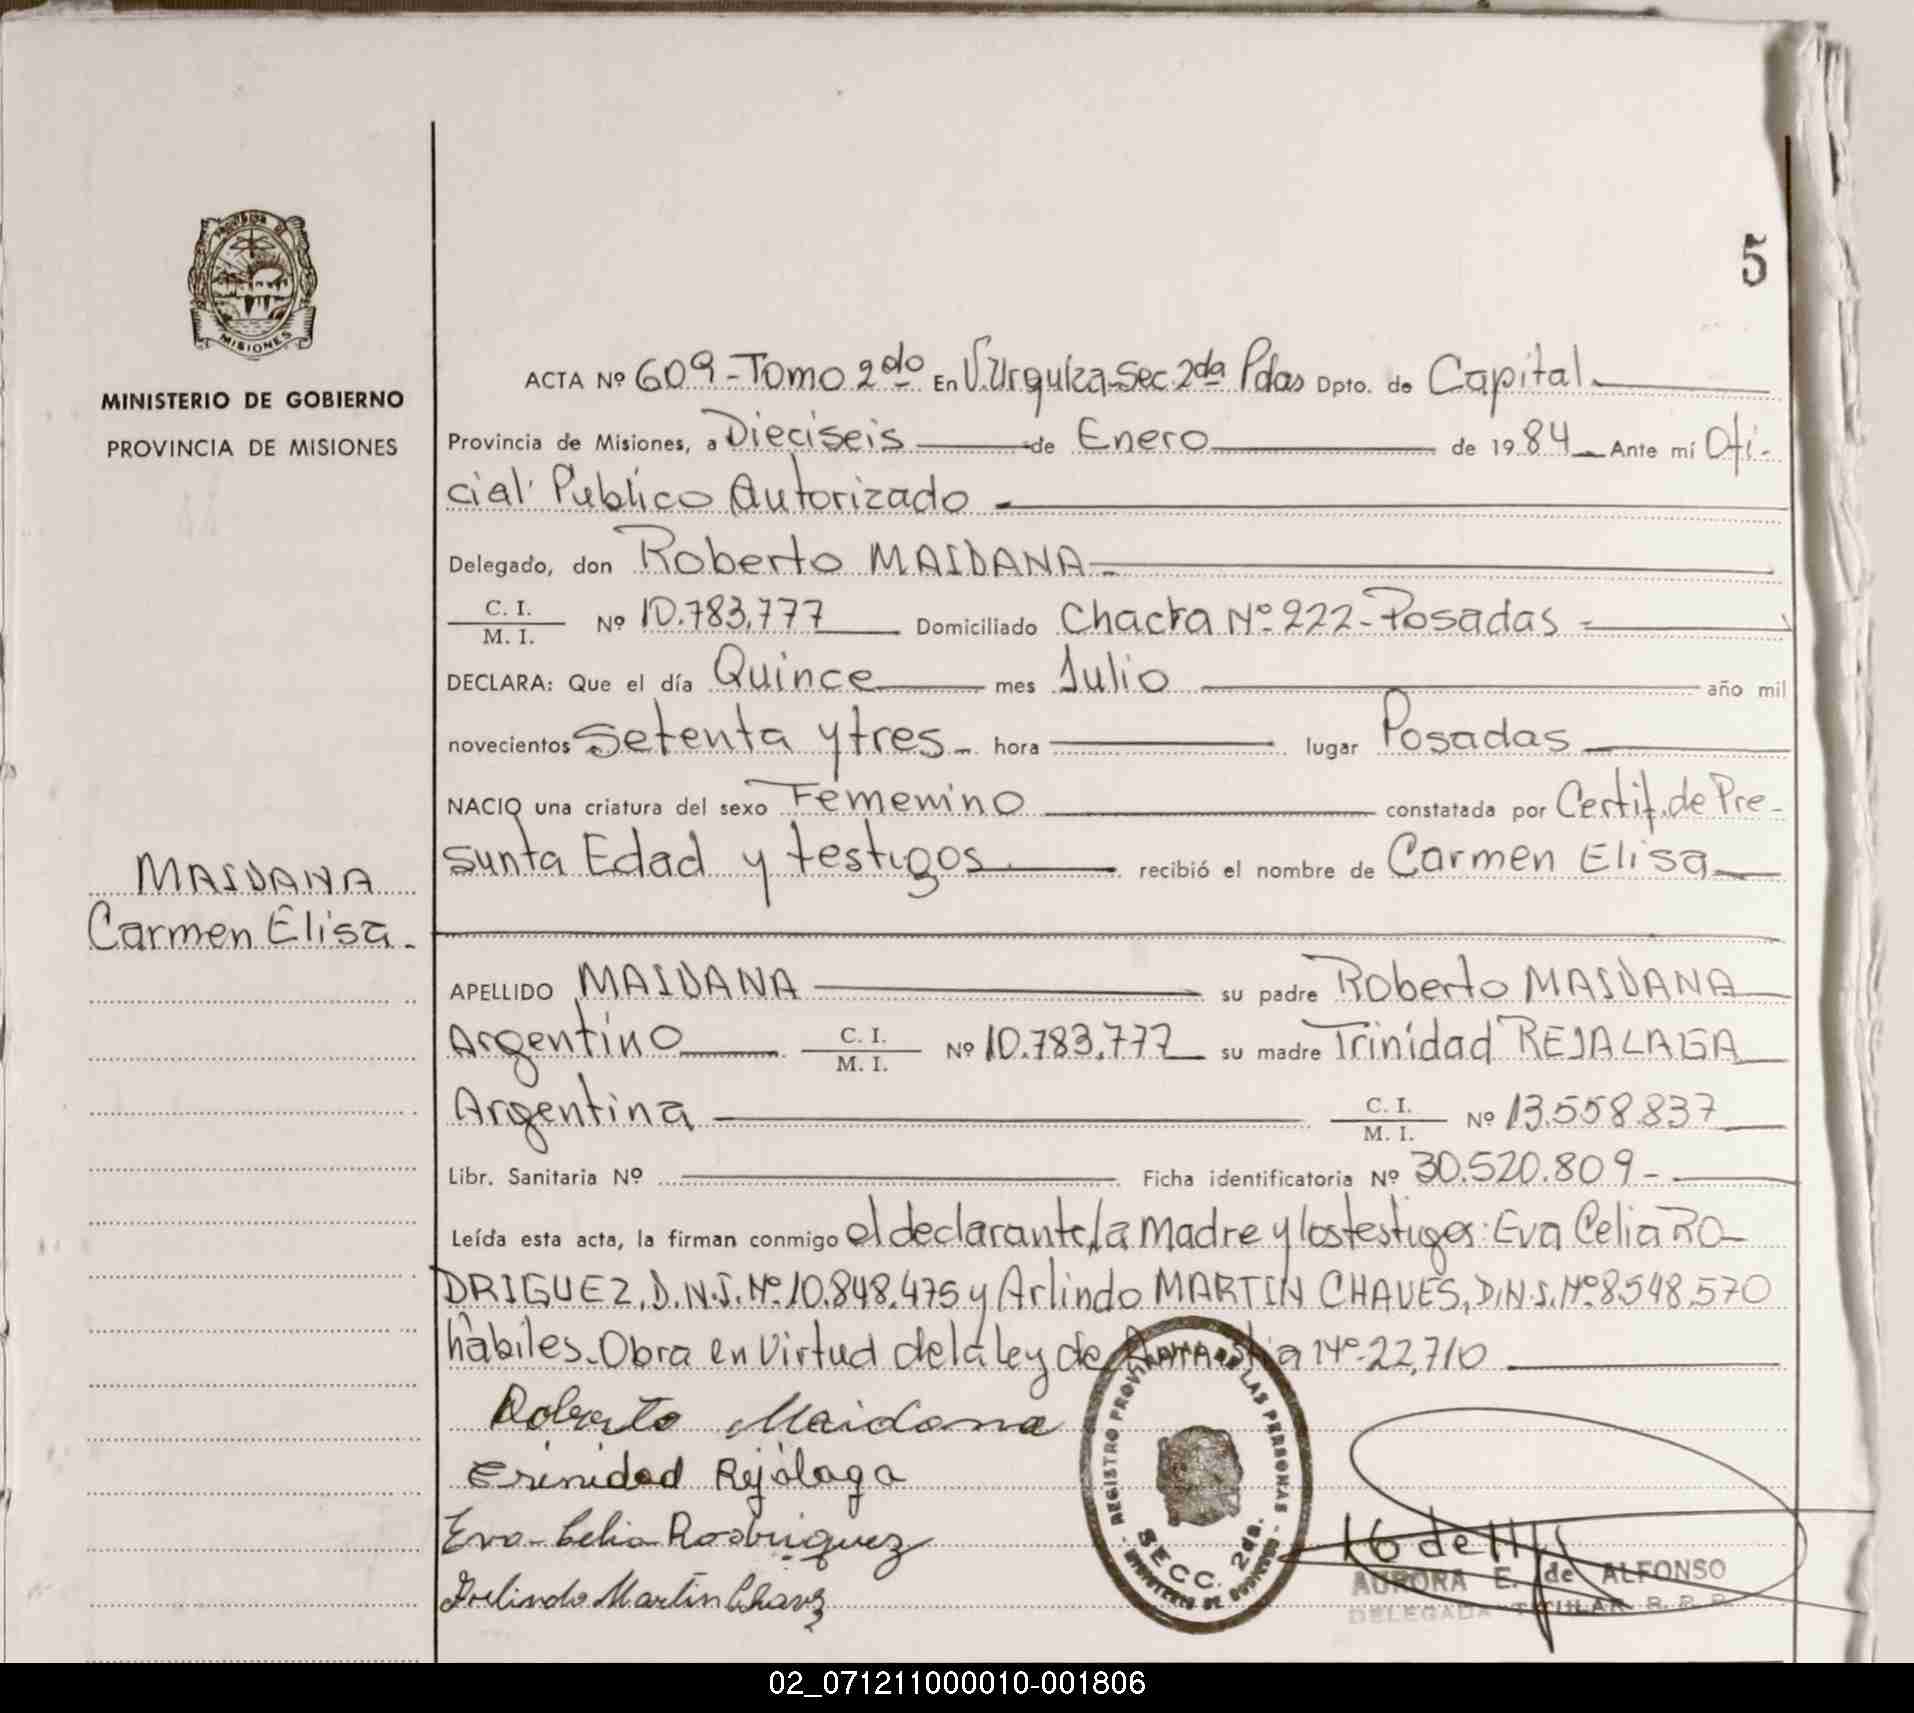 5
PROVINCIA DE
MISIONES
MINISTERIO DE GOBIERNO
PROVINCIA DE MISIONES
MAIDANA
Carmen Elisa.
ACTA Nº 609-Tomo 2do En V.Urquiza-Sec. 2da Pdas Dpto. de Capital
Provincia de Misiones, a Dieciseis de Enero de 1984 Ante mí Ofi-
cial Publico Autorizado
Delegado, don Roberto MAIDANA
C. I.
M. I. Nº 10.783,777 Domiciliado Chacra Nº 222-Posadas-
DECLARA: Que el día Quince mes Julio año mil
novecientos Setenta y tres hora lugar Posadas
NACIO una criatura del sexo Femenino constatada por Certif. de Pre-
sunta Edad y testigos recibió el nombre de Carmen Elisa
APELLIDO MAIDANA su padre Roberto MAIDANA
Argentino C. I.
M. I. Nº 10.783,777 su madre Trinidad REJALAGA
Argentina C. I.
M. I. Nº 13.558.837
Libr. Sanitaria Nº Ficha identificatoria Nº 30.520.809-
Leída esta acta, la firman conmigo el declarante, la Madre y los testigos: Eva Celia RO-
DRIGUEZ, D.N.I. Nº 10.848.475 y Arlindo MARTIN CHAVES, D.N.I. Nº 8.548.570
hábiles. Obra en Virtud de la ley de Amnistia Nº 22,710
Roberto Maidana
Trinidad Rejálaga
Eva Celia Rodriguez
Arlindo Martin Chavez
REGISTRO PROVINCIAL DE LAS PERSONAS
SECC. 2da.
MINISTERIO DE GOBIERNO
AURORA E. de ALFONSO
DELEGADA TITULAR R. P. P.
02_071211000010-001806